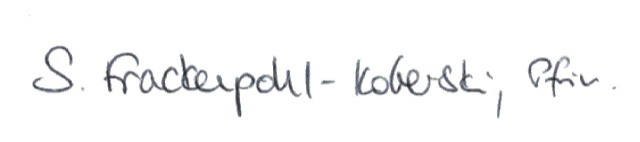 S. Frackenpohl-Koberski, Pfrin.